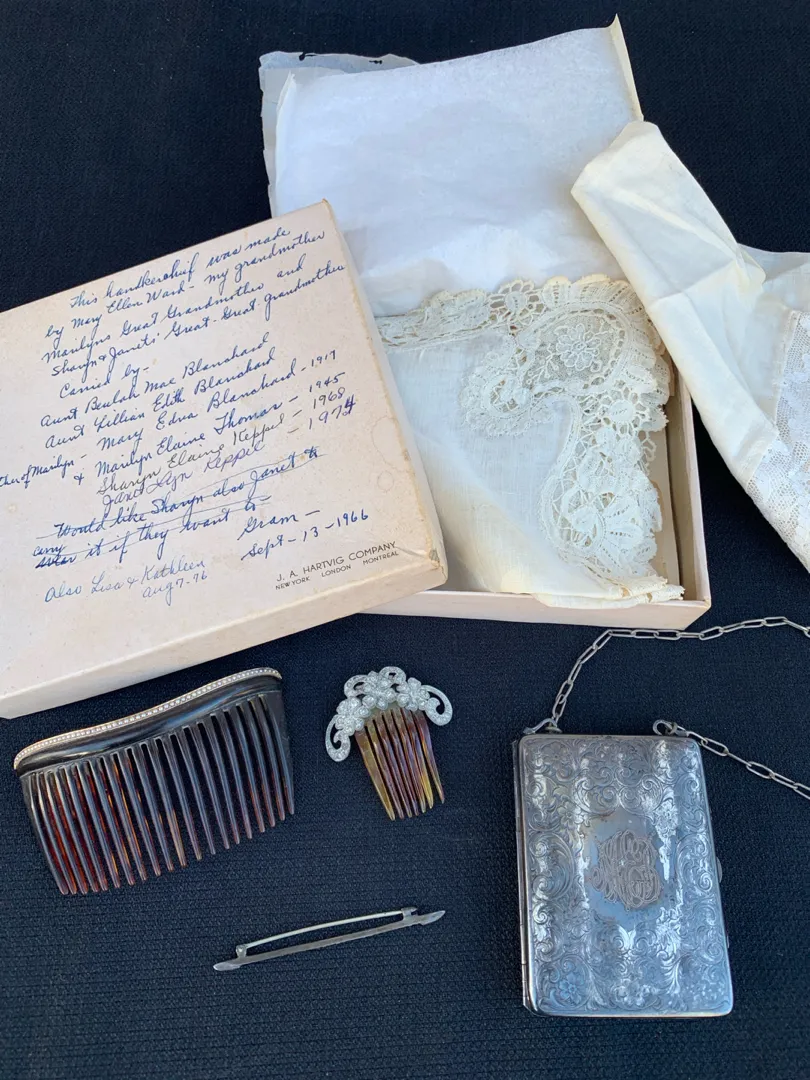 This handkerchief was made
by Mary Ellen Ward - my grandmother
Marilyns Great Grandmother and
Sharyn & Janets' Great-Great-grandmother
Carried by -
Aunt Beulah Mae Blanchard
Aunt Lillian Edith Blanchard
ther of Marilyn - Mary Edna Blanchard - 1917
& Marilyn Elaine Thomas - 1945
Sharyn Elaine Keppel - 1968
Janet Lyn Keppel - 1974
Would like Sharyn also Janet to
carry
wear it if they want to -
Gram -
Sept - 13 - 1966
Also Lisa & Kathleen
Aug 7-76
J. A. HARTVIG COMPANY
NEW YORK LONDON MONTREAL